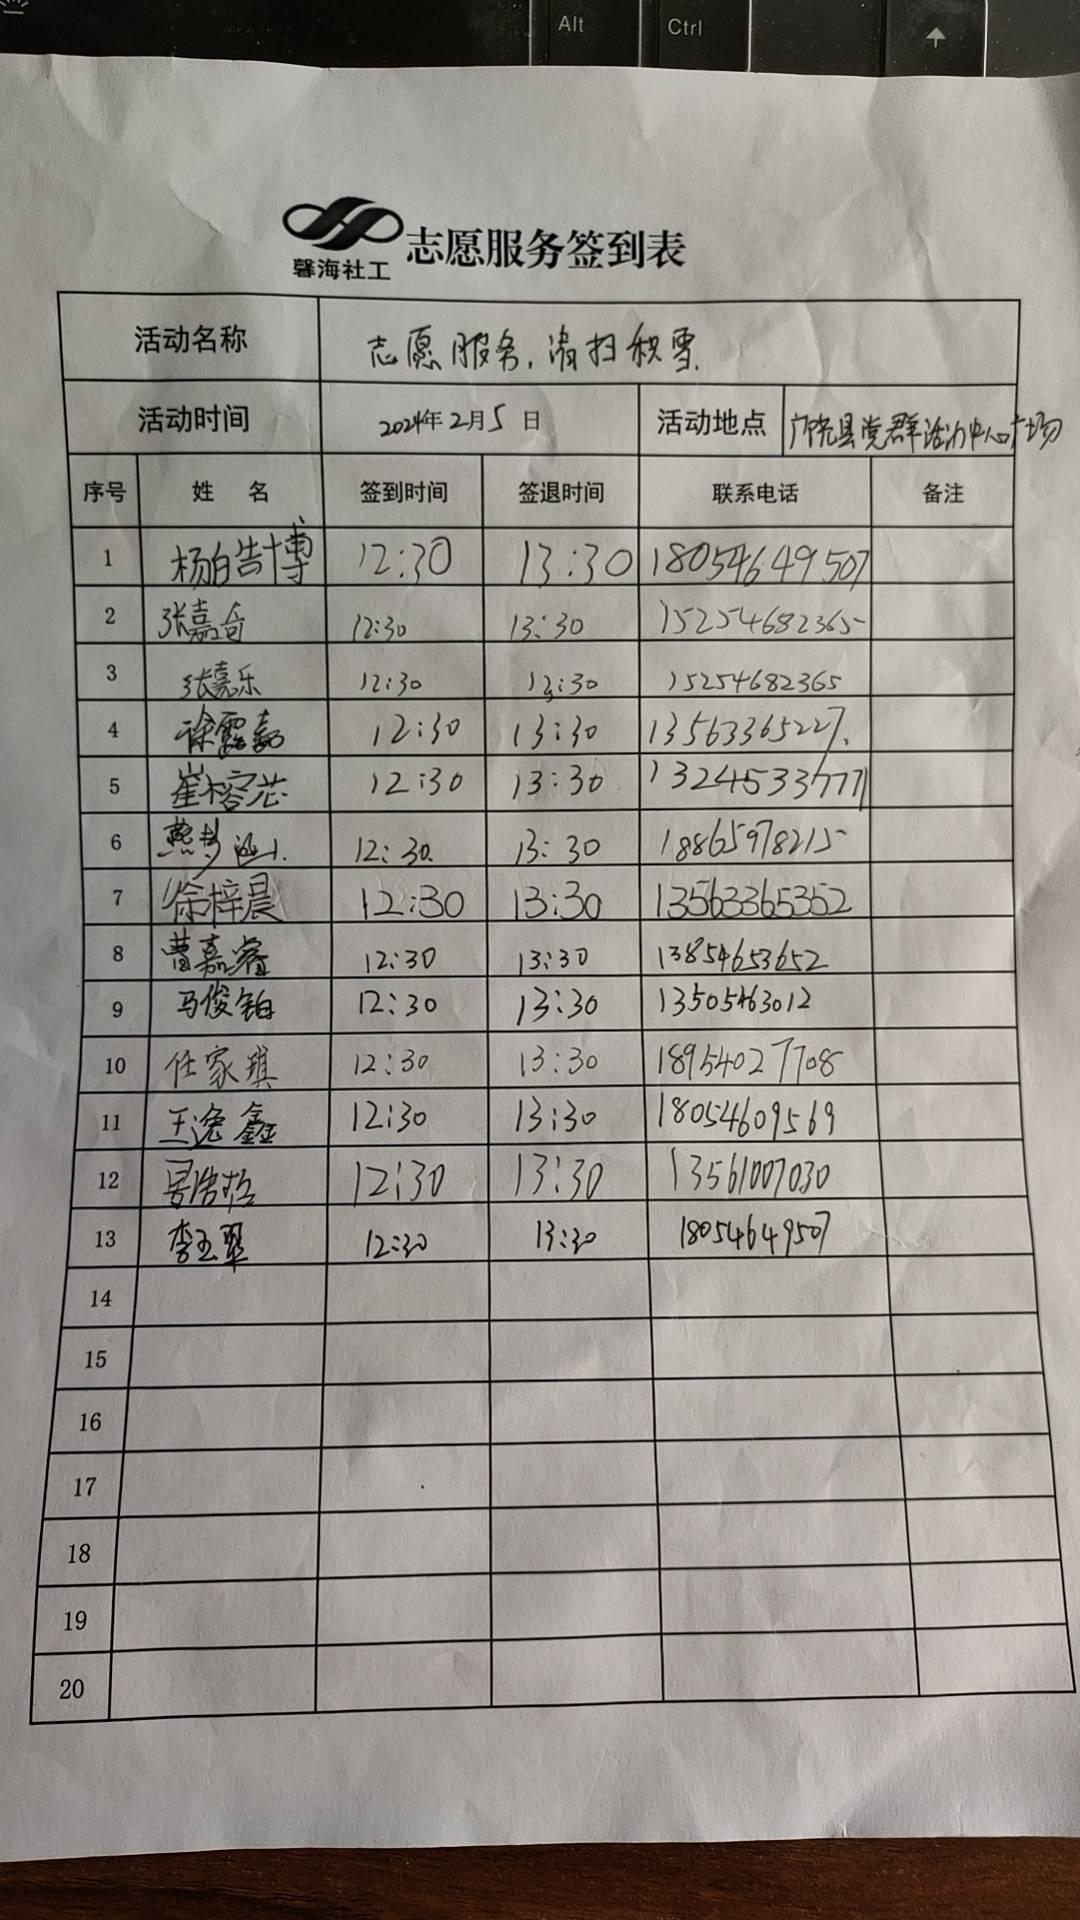 Alt Ctrl
馨海社工 志愿服务签到表
活动名称 志愿服务,清扫积雪.
活动时间 2024年2月5日 活动地点 县党群活动中心广场
序号 姓 名 签到时间 签退时间 联系电话 备注
1 杨皓博 12:30 13:30 18054649507
2 张嘉奇 12:30 13:30 15254682365
3 张嘉乐 12:30 13:30 15254682365
4 徐露 12:30 13:30 13563365227.
5 崔榕芯 12:30 13:30
6 燕梦 12:30. 13:30 18865978215
7 徐梓晨 12:30 13:30 13563365352
8 曹嘉睿 12:30 13:30 13854653652
9 马俊铂 12:30 13:30 13505463012
10 任家琪 12:30 13:30 18954027708
11 王逸鑫 12:30 13:30 18054609569
12 浩 12:30 13:30 13561007030
13 李玉翠 12:30 13:30 18054649507
14
15
16
17
18
19
20